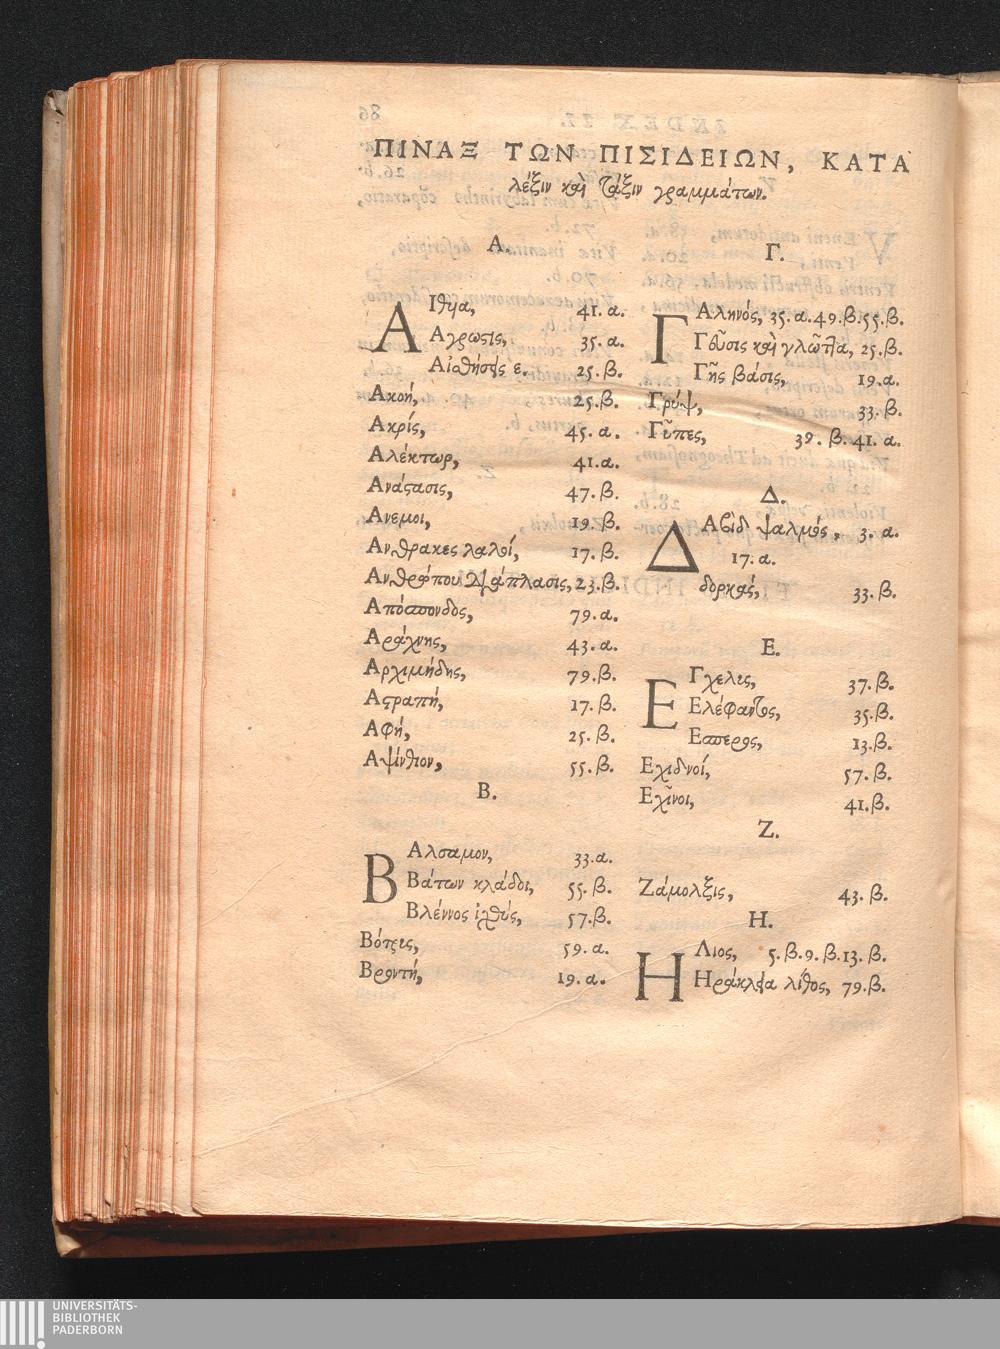 ΠΙΝΑΞ ΤΩΝ ΠΙΣΙΔΕΙΩΝ, ΚΑΤΑ
λέξιν καὶ τάξιν γραμμάτων.
Α.
ΑΙθυα, 41. α.
Αγρωστις, 35. α.
Αἰσθήσεις ε. 25. β.
Ακοή, 25. β.
Ακρίς, 45. α.
Αλέκτωρ, 41. α.
Ανάστασις, 47. β.
Ανεμοι, 19. β.
Ανθρακες λαλοί, 17. β.
Ανθρώπου διάπλασις, 23. β.
Απόσπονδος, 79. α.
Αράχνης, 43. α.
Αρχιμήδης, 79. β.
Αστραπή, 17. β.
Αφή, 25. β.
Αψίνθιον, 55. β.
Β.
ΒΑλσαμον, 33. α.
Βάτων κλάδοι, 55. β.
Βλέννος ἰχθύς, 57. β.
Βότρις, 59. α.
Βροντή, 19. α.
Γ.
ΓΑληνός, 35. α. 49. β. 55. β.
Γεῦσις καὶ γλῶττα, 25. β.
Γῆς βάσις, 19. α.
Γρύψ, 33. β.
Γῦπες, 39. β. 41. α.
Δ.
ΔΑβὶδ ψαλμός, 3. α.
17. α.
δορκάς, 33. β.
Ε.
ΕΓχελις, 37. β.
Ελέφαντος, 35. β.
Εσπερος, 13. β.
Εχιδνοί, 57. β.
Εχῖνοι, 41. β.
Ζ.
Ζάμολξις, 43. β.
Η.
ΗΛιος, 5. β. 9. β. 13. β.
Ηράκλεια λίθος, 79. β.
UNIVERSITÄTS-
BIBLIOTHEK
PADERBORN